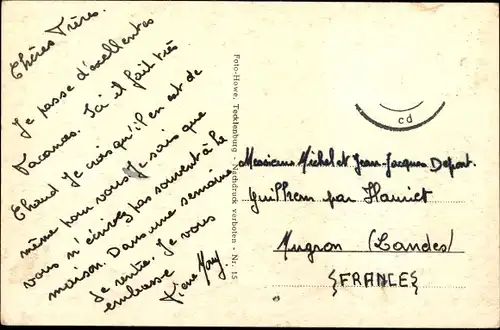 Chères Frères.
Je passe d'excellentes
Vacances. Ici il fait très
Chaud Je crois qu'il en est de
même pour vous Je sais que
vous n'écrivez pas souvent à la
maison. Dans une semaine
Je rentre. Je vous
embrasse
Foto-Howe, Tecklenburg - Nachdruck verboten - Nr. 15
cd
Messieurs Michel et Jean-Jacques Depont.
Guilhem par Hauriet
Mugron (Landes)
FRANCE